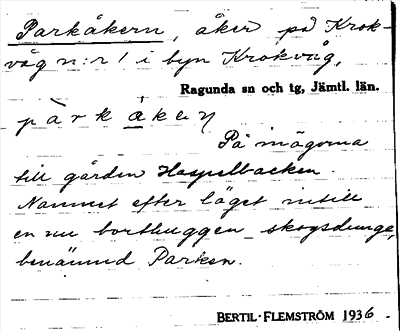 Parkåkern, åker på Krok-
våg n:r 1 i byn Krokvåg,
Ragunda sn och tg, Jämtl. län.
parkåken
På inägorna
till gården Haspelbacken.
Namnet efter läget intill
en nu borthuggen skogsdunge,
benämnd Parken.
BERTIL FLEMSTRÖM 1936.